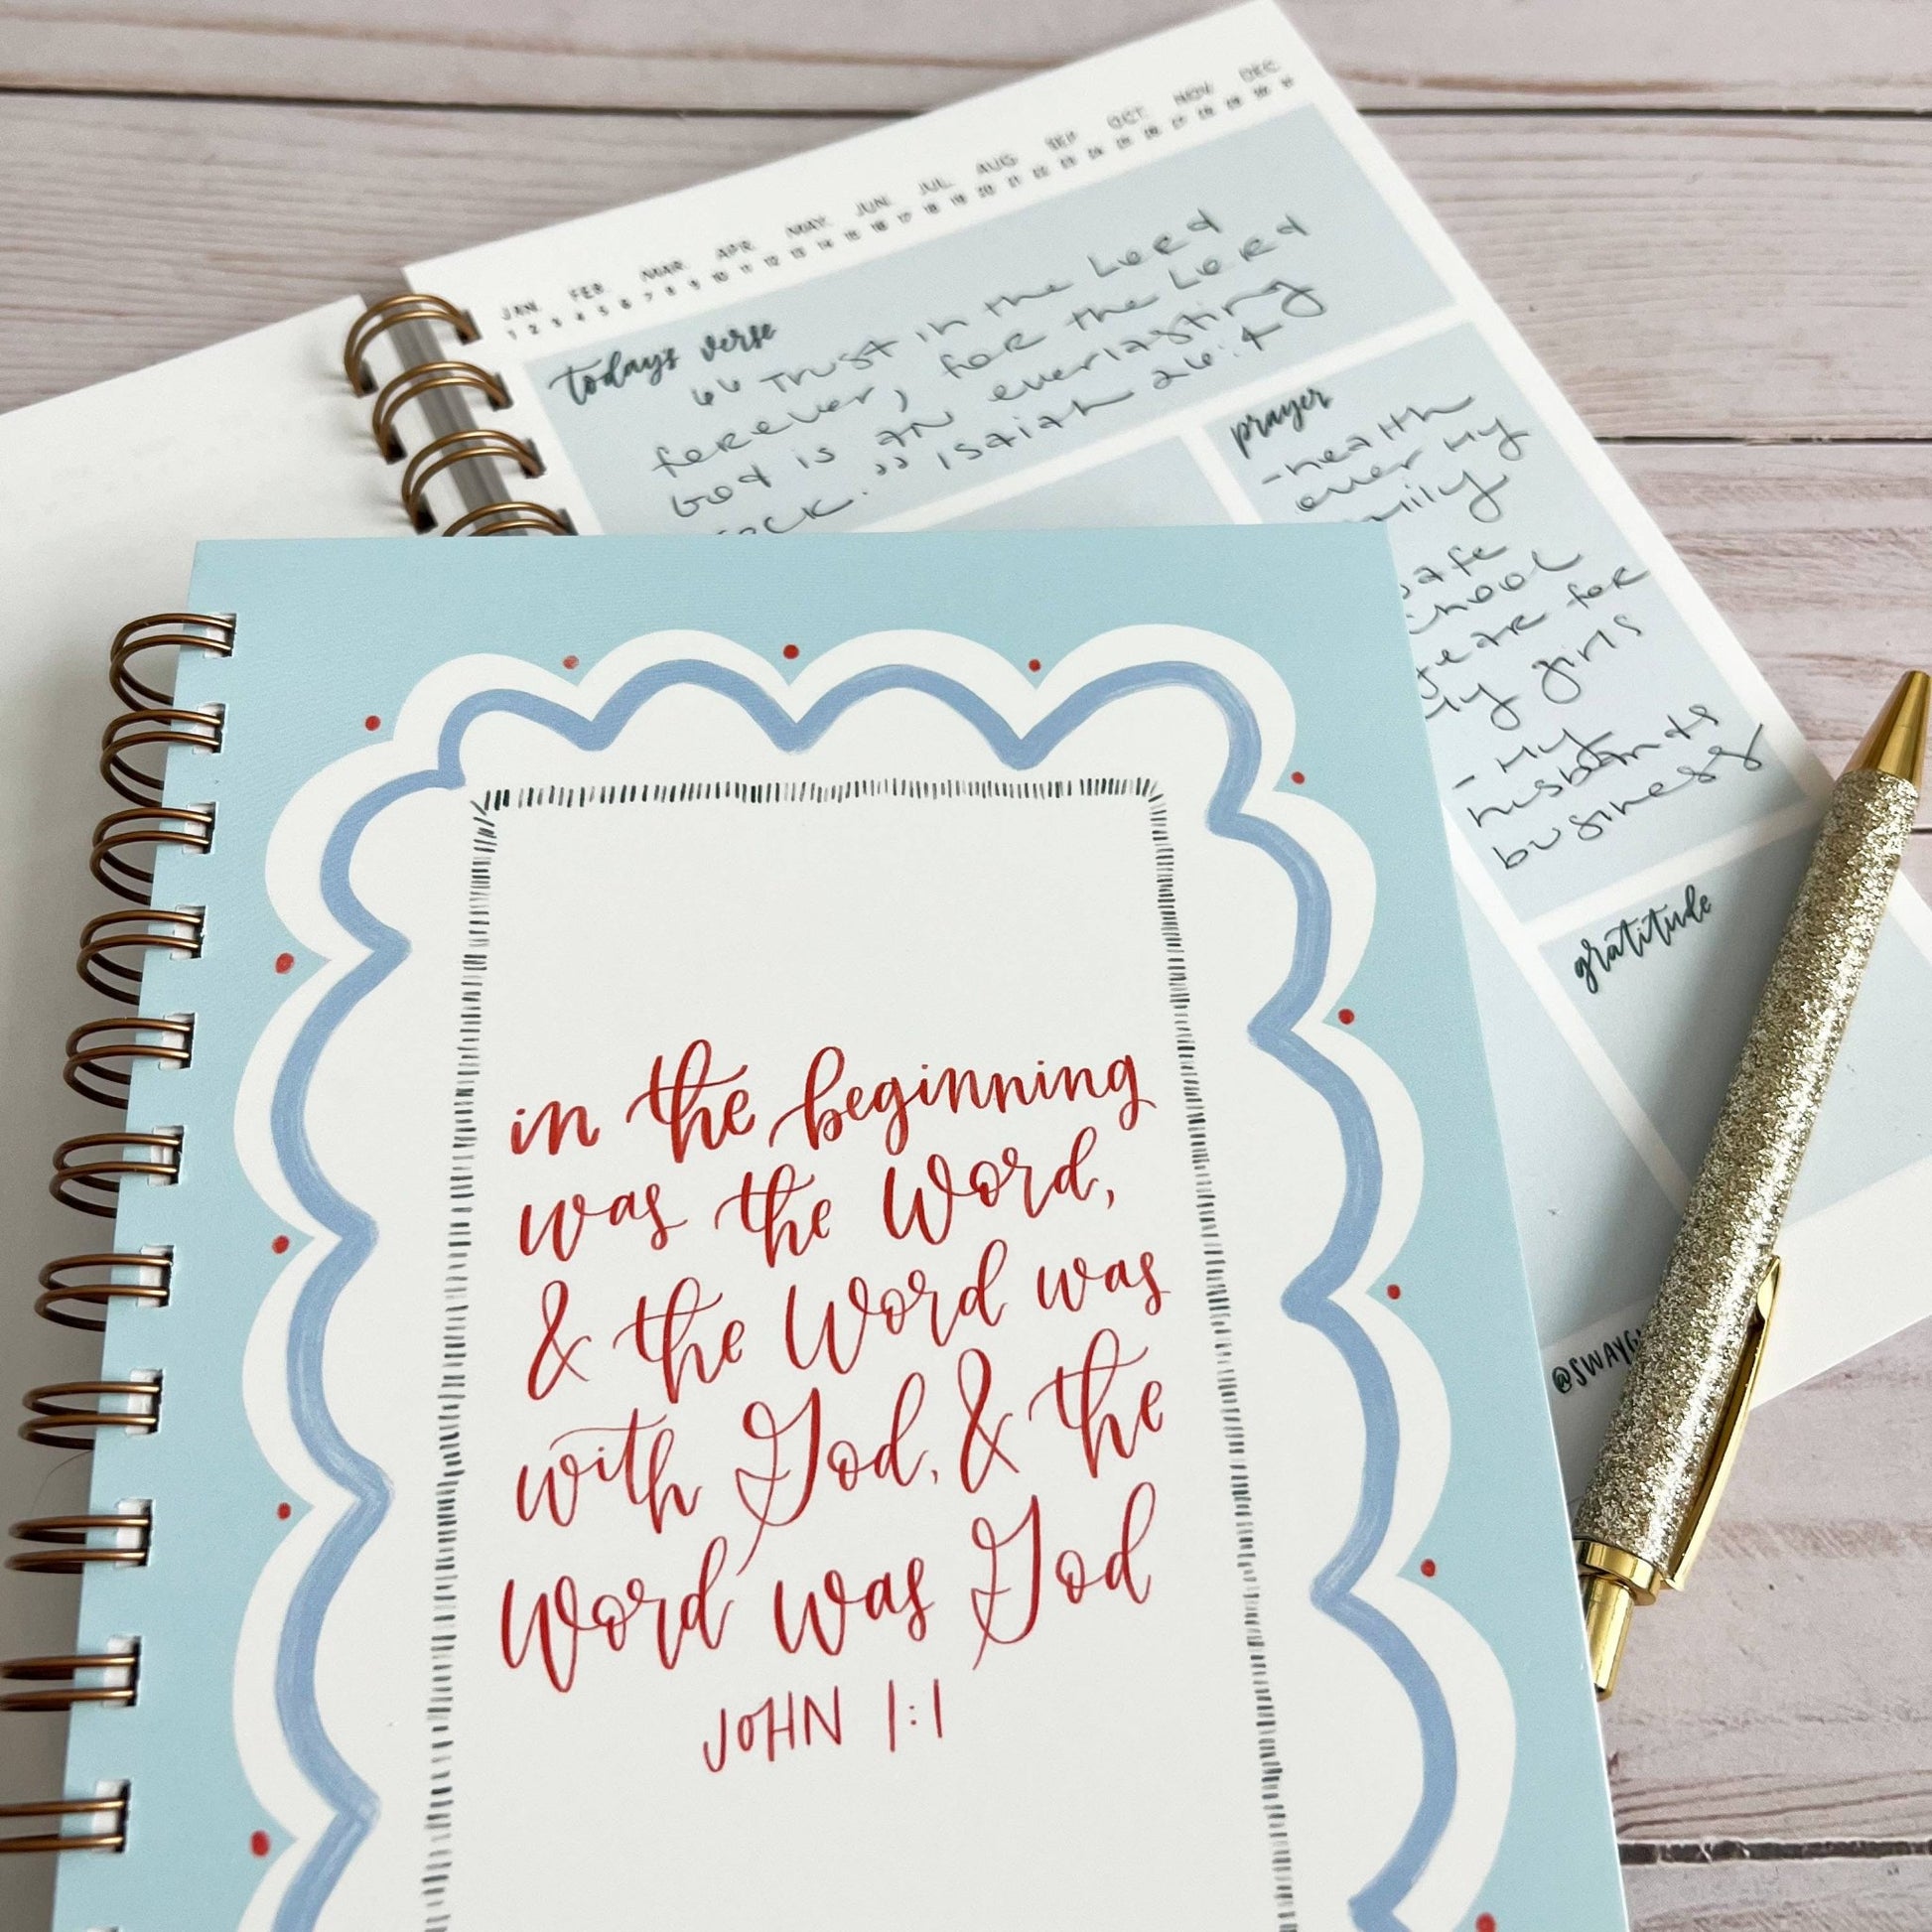 JAN. FEB. MAR. APR. MAY. JUN. JUL. AUG. SEP. OCT. NOV. DEC.
1 2 3 4 5 6 7 8 9 10 11 12 13 14 15 16 17 18 19 20 21 22 23 24 25 26 27 28 29 30 31
todays verse
“Trust in the Lord
forever, for the Lord
God is an everlasting
rock.” Isaiah 26:4
prayer
- health
over my
mily
afe
chool
year for
my girls
- My
husbands
business
gratitude
@SWAYG
in the beginning
was the Word,
& the Word was
with God, & the
Word was God
JOHN 1:1